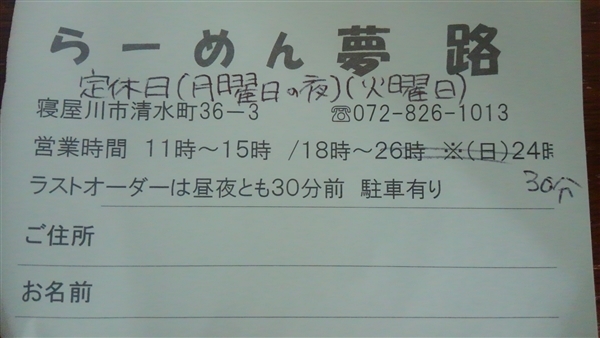 らーめん夢路
定休日(月曜日の夜)(火曜日)
寝屋川市清水町36-3 ☎072-826-1013
営業時間 11時～15時 /18時～26時 ※(日)24時
30分
ラストオーダーは昼夜とも30分前 駐車有り
ご住所
お名前